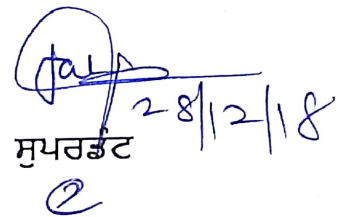 28/12/18
ਸੁਪਰਡੰਟ